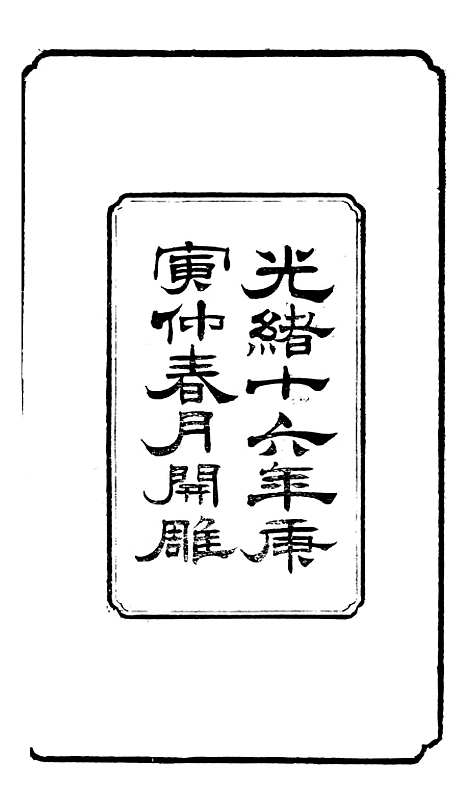 光緒十六年庚
寅仲春月開雕